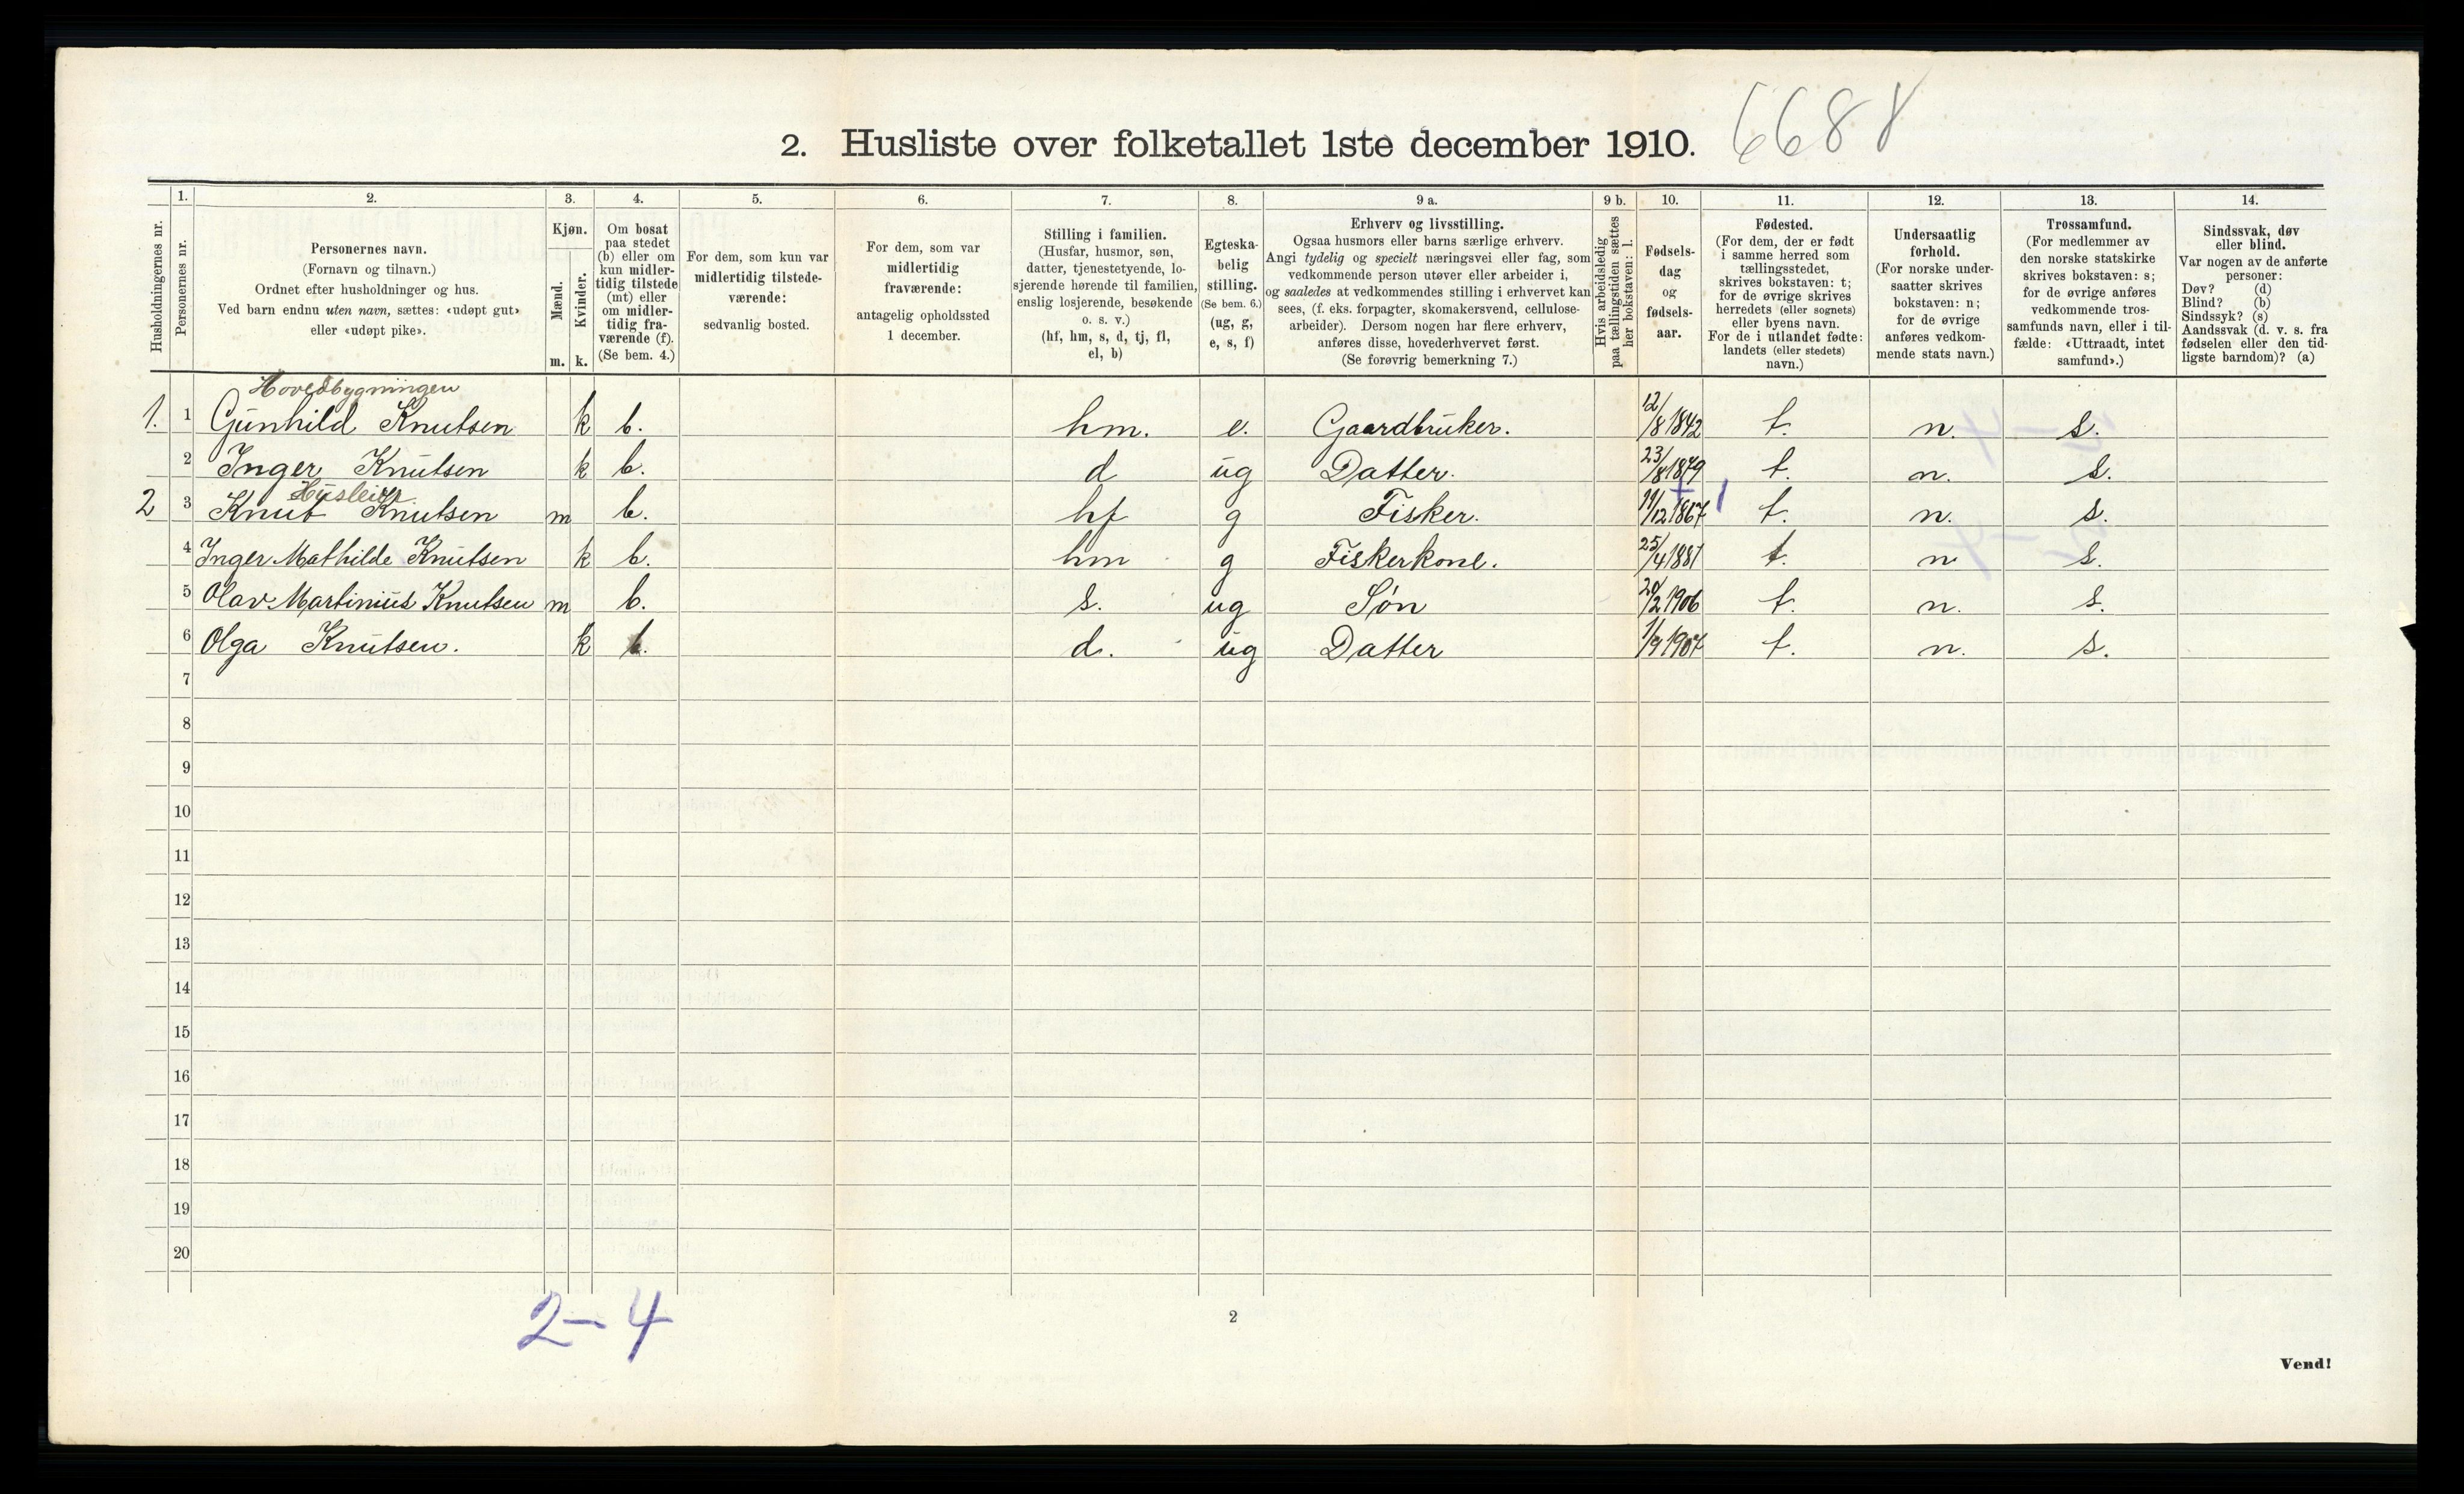 2. Husliste over folketallet 1ste december 1910. 6688
1. 2. 3. 4. 5. 6. 7. 8. 9 a. 9 b. 10. 11. 12. 13. 14.
Husholdningernes nr.
Personernes nr.
Personernes navn.
(Fornavn og tilnavn.)
Ordnet efter husholdninger og hus.
Ved barn endnu uten navn, sættes: «udøpt gut»
eller «udøpt pike».
Kjøn.
Mænd.
Kvinder.
m. k.
Om bosat
paa stedet
(b) eller om
kun midler-
tidig tilstede
(mt) eller
om midler-
tidig fra-
værende (f).
(Se bem. 4.)
For dem, som kun var
midlertidig tilstede-
værende:
sedvanlig bosted.
For dem, som var
midlertidig
fraværende:
antagelig opholdssted
1 december.
Stilling i familien.
(Husfar, husmor, søn,
datter, tjenestetyende, lo-
sjerende hørende til familien,
enslig losjerende, besøkende
o. s. v.)
(hf, hm, s, d, tj, fl,
el, b)
Egteska-
belig
stilling.
(Se bem. 6.)
(ug, g,
e, s, f)
Erhverv og livsstilling.
Ogsaa husmors eller barns særlige erhverv.
Angi tydelig og specielt næringsvei eller fag, som
vedkommende person utøver eller arbeider i,
og saaledes at vedkommendes stilling i erhvervet kan
sees, (f. eks. forpagter, skomakersvend, cellulose-
arbeider). Dersom nogen har flere erhverv,
anføres disse, hovederhvervet først.
(Se forøvrig bemerkning 7.)
Hvis arbeidsledig
paa tællingstiden sættes
her bokstaven: l.
Fødsels-
dag
og
fødsels-
aar.
Fødested.
(For dem, der er født
i samme herred som
tællingsstedet,
skrives bokstaven: t;
for de øvrige skrives
herredets (eller sognets)
eller byens navn.
For de i utlandet fødte:
landets (eller stedets)
navn.)
Undersaatlig
forhold.
(For norske under-
saatter skrives
bokstaven: n;
for de øvrige
anføres vedkom-
mende stats navn.)
Trossamfund.
(For medlemmer av
den norske statskirke
skrives bokstaven: s;
for de øvrige anføres
vedkommende tros-
samfunds navn, eller i til-
fælde: «Uttraadt, intet
samfund».)
Sindssvak, døv
eller blind.
Var nogen av de anførte
personer:
Døv? (d)
Blind? (b)
Sindssyk? (s)
Aandssvak (d. v. s. fra
fødselen eller den tid-
ligste barndom)? (a)
Hovedbygningen
1. 1 Gunhild Knutsen k b. hm. e. Gaardbruker. 12/8 1842 t. n. s.
2 Inger Knutsen k b. d ug Datter. 23/8 1879 t. n. s.
Husleier
2 3 Knut Knutsen m b. hf g Fisker. 19/12 1867 t. n. s.
4 Inger Mathilde Knutsen k b. hm g Fiskerkone. 25/4 1881 t. n s.
5 Olav Martinius Knutsen m b. s. ug Søn 20/2 1906 t. n. s.
6 Olga Knutsen. k b. d. ug Datter 1/9 1907 t. n. s.
7
8
9
10
11
12
13
14
15
16
17
18
19
20
2-4
2
Vend!